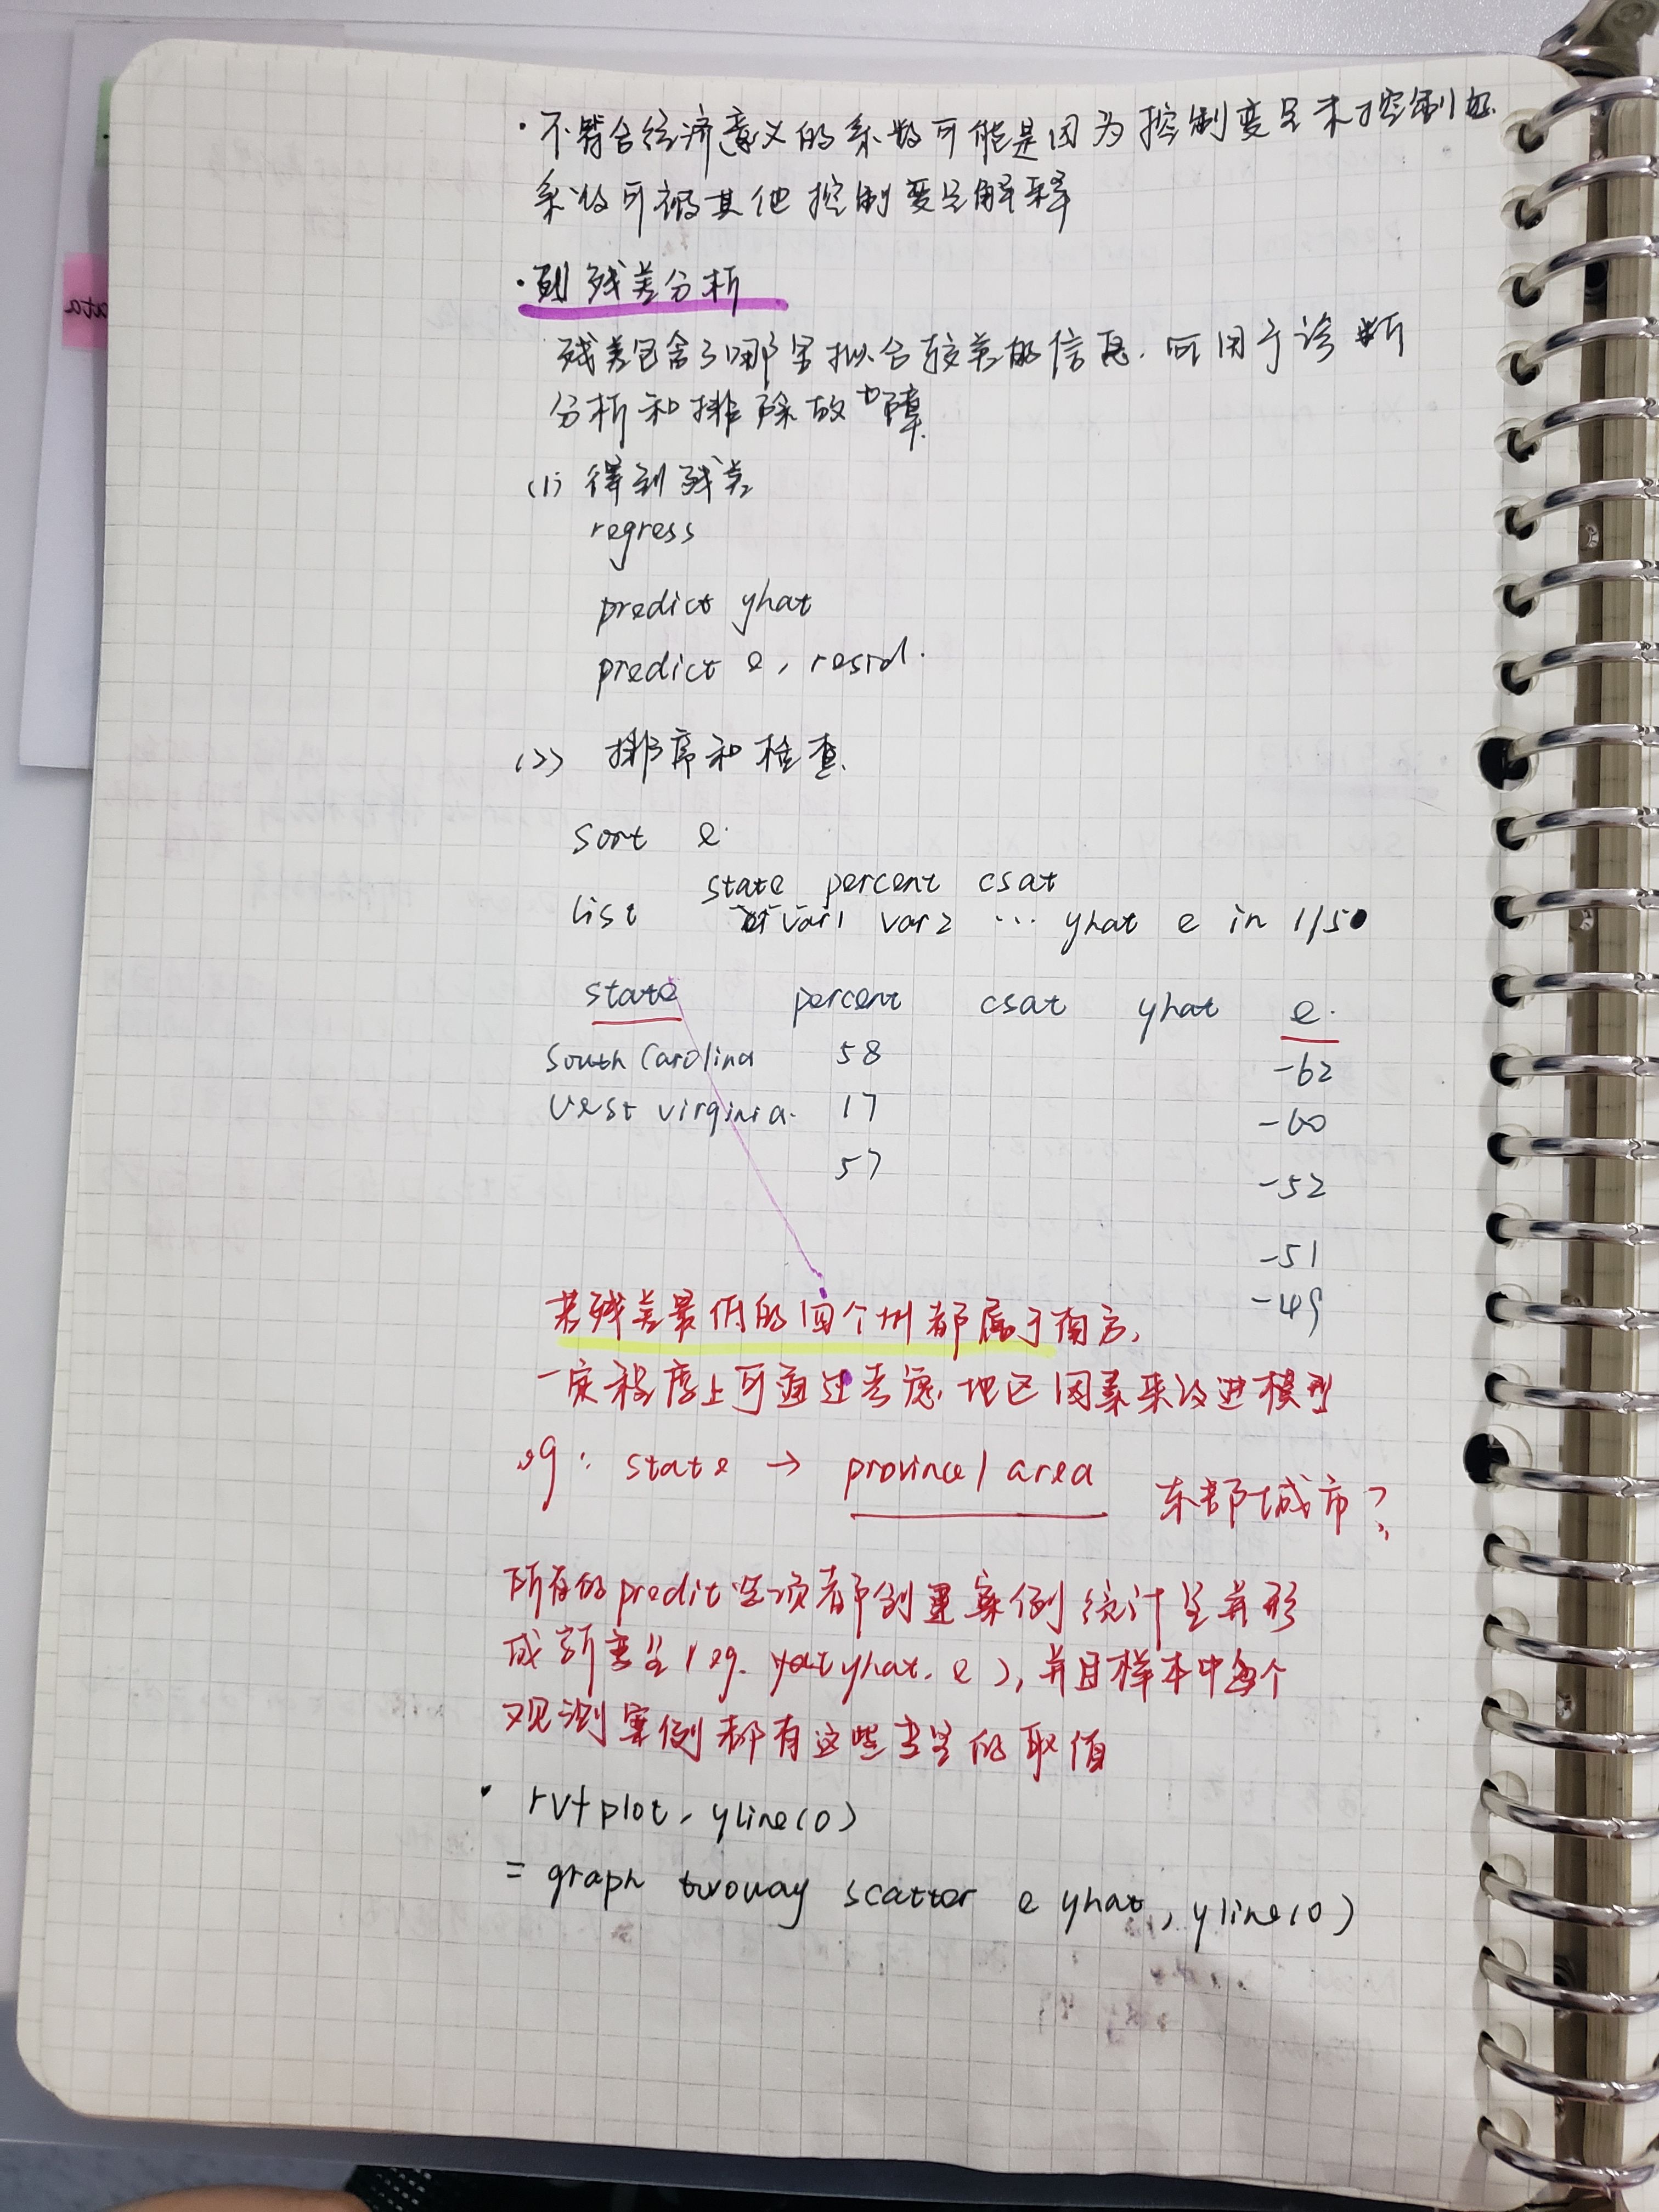 ·不符合经济意义的系数可能是因为控制变量未控制好
系数可被其他控制变量解释
·到残差分析
残差包含了哪里拟合较差的信息.可用于诊断
分析和排除故障.
(1) 得到残差
regress
predict yhat
predict e, resid.
(2) 排序和检查.
sort e
state percent csat
list var1 var2 ... yhat e in 1/50
state percent csat yhat e.
South Carolina 58 -62
West virginia. 17 -60
57 -52
-51
-49
若残差最低的四个州都属于南方,
一定程度上可通过考虑地区因素来改进模型
eg: state → province/area 东部城市?
所有的predit选项都创建案例统计量并形
成新变量(eg. yhat. e), 并且样本中每个
观测案例都有这些变量的取值
· rvfplot, yline(0)
= graph twoway scatter e yhat, yline(0)
ata